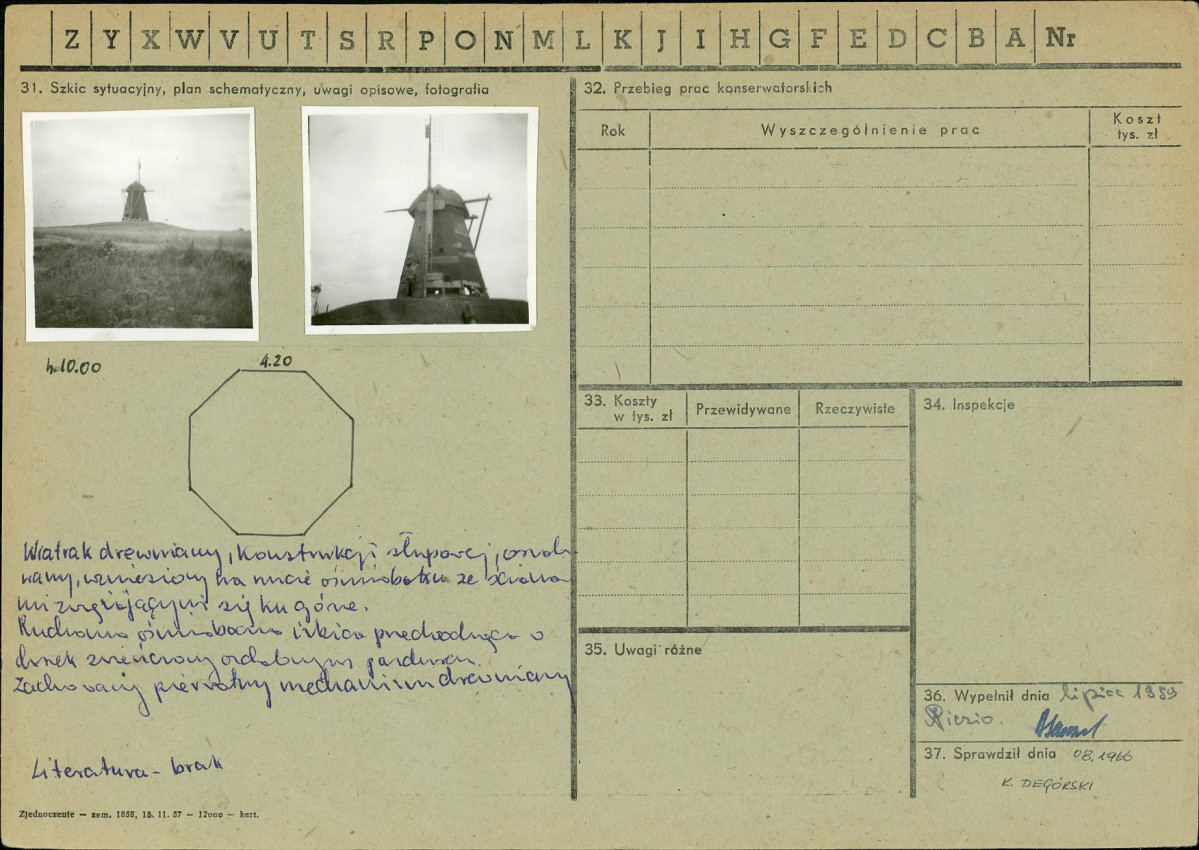 Z Y X W V U T S R P O N M L K J I H G F E D C B A Nr
31. Szkic sytuacyjny, plan schematyczny, uwagi opisowe, fotografia
h. 10.00
4.20
Wiatrak drewniany, konstrukcji słupowej,
wany, wzniesiony na rzucie ośmioboku ze ściana
mi zwężającymi się ku górze.
Ruchoma ośmioboczna przechodząca w
zwieńczony ozdobnym
Zachowany pierwotny mechanizm drewniany
Literatura - brak
Zjednoczenie — zam. 1858, 15. 11. 57 — 12000 — kart.
32. Przebieg prac konserwatorskich
Rok
Wyszczególnienie prac
Koszt
tys. zł
33. Koszty
w tys. zł
Przewidywane
Rzeczywiste
34. Inspekcje
35. Uwagi różne
36. Wypełnił dnia lipiec 1959
37. Sprawdził dnia 08,1966
K. DEGÓRSKI